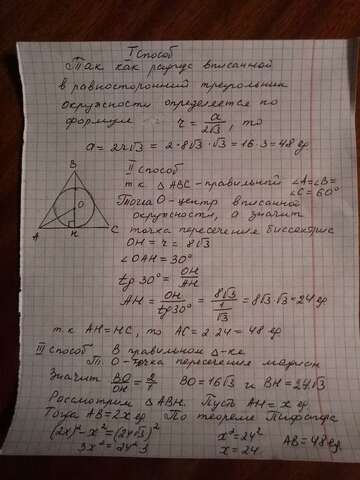 I способ
Так как радиус вписанной
в равносторонний треугольник
окружности определяется по
формуле r = a/2√3, то
a = 2r√3 = 2·8√3·√3 = 16·3 = 48 ед
II способ
т.к. △ABC - правильный ∠A=∠B=
∠C=60°
Тогда O - центр вписанной
окружности, а значит
точка пересечения биссектрис
OH = r = 8√3
∠OAH = 30°
tg 30° = OH/AH
AH = OH/tg30° = 8√3/(1/√3) = 8√3·√3 = 24 ед
B
O
A
H
C
т.к AH=HC, то AC = 2·24 = 48 ед
III способ В правильном △-ке
т. O - точка пересечения медиан
Значит BO/OH = 2/1 BO = 16√3 и BH = 24√3
Рассмотрим △ABH. Пусть AH = x ед
Тогда AB=2x ед По теореме Пифагора
(2x)² - x² = (24√3)² x² = 24²
3x² = 24²·3 x = 24 AB = 48 ед